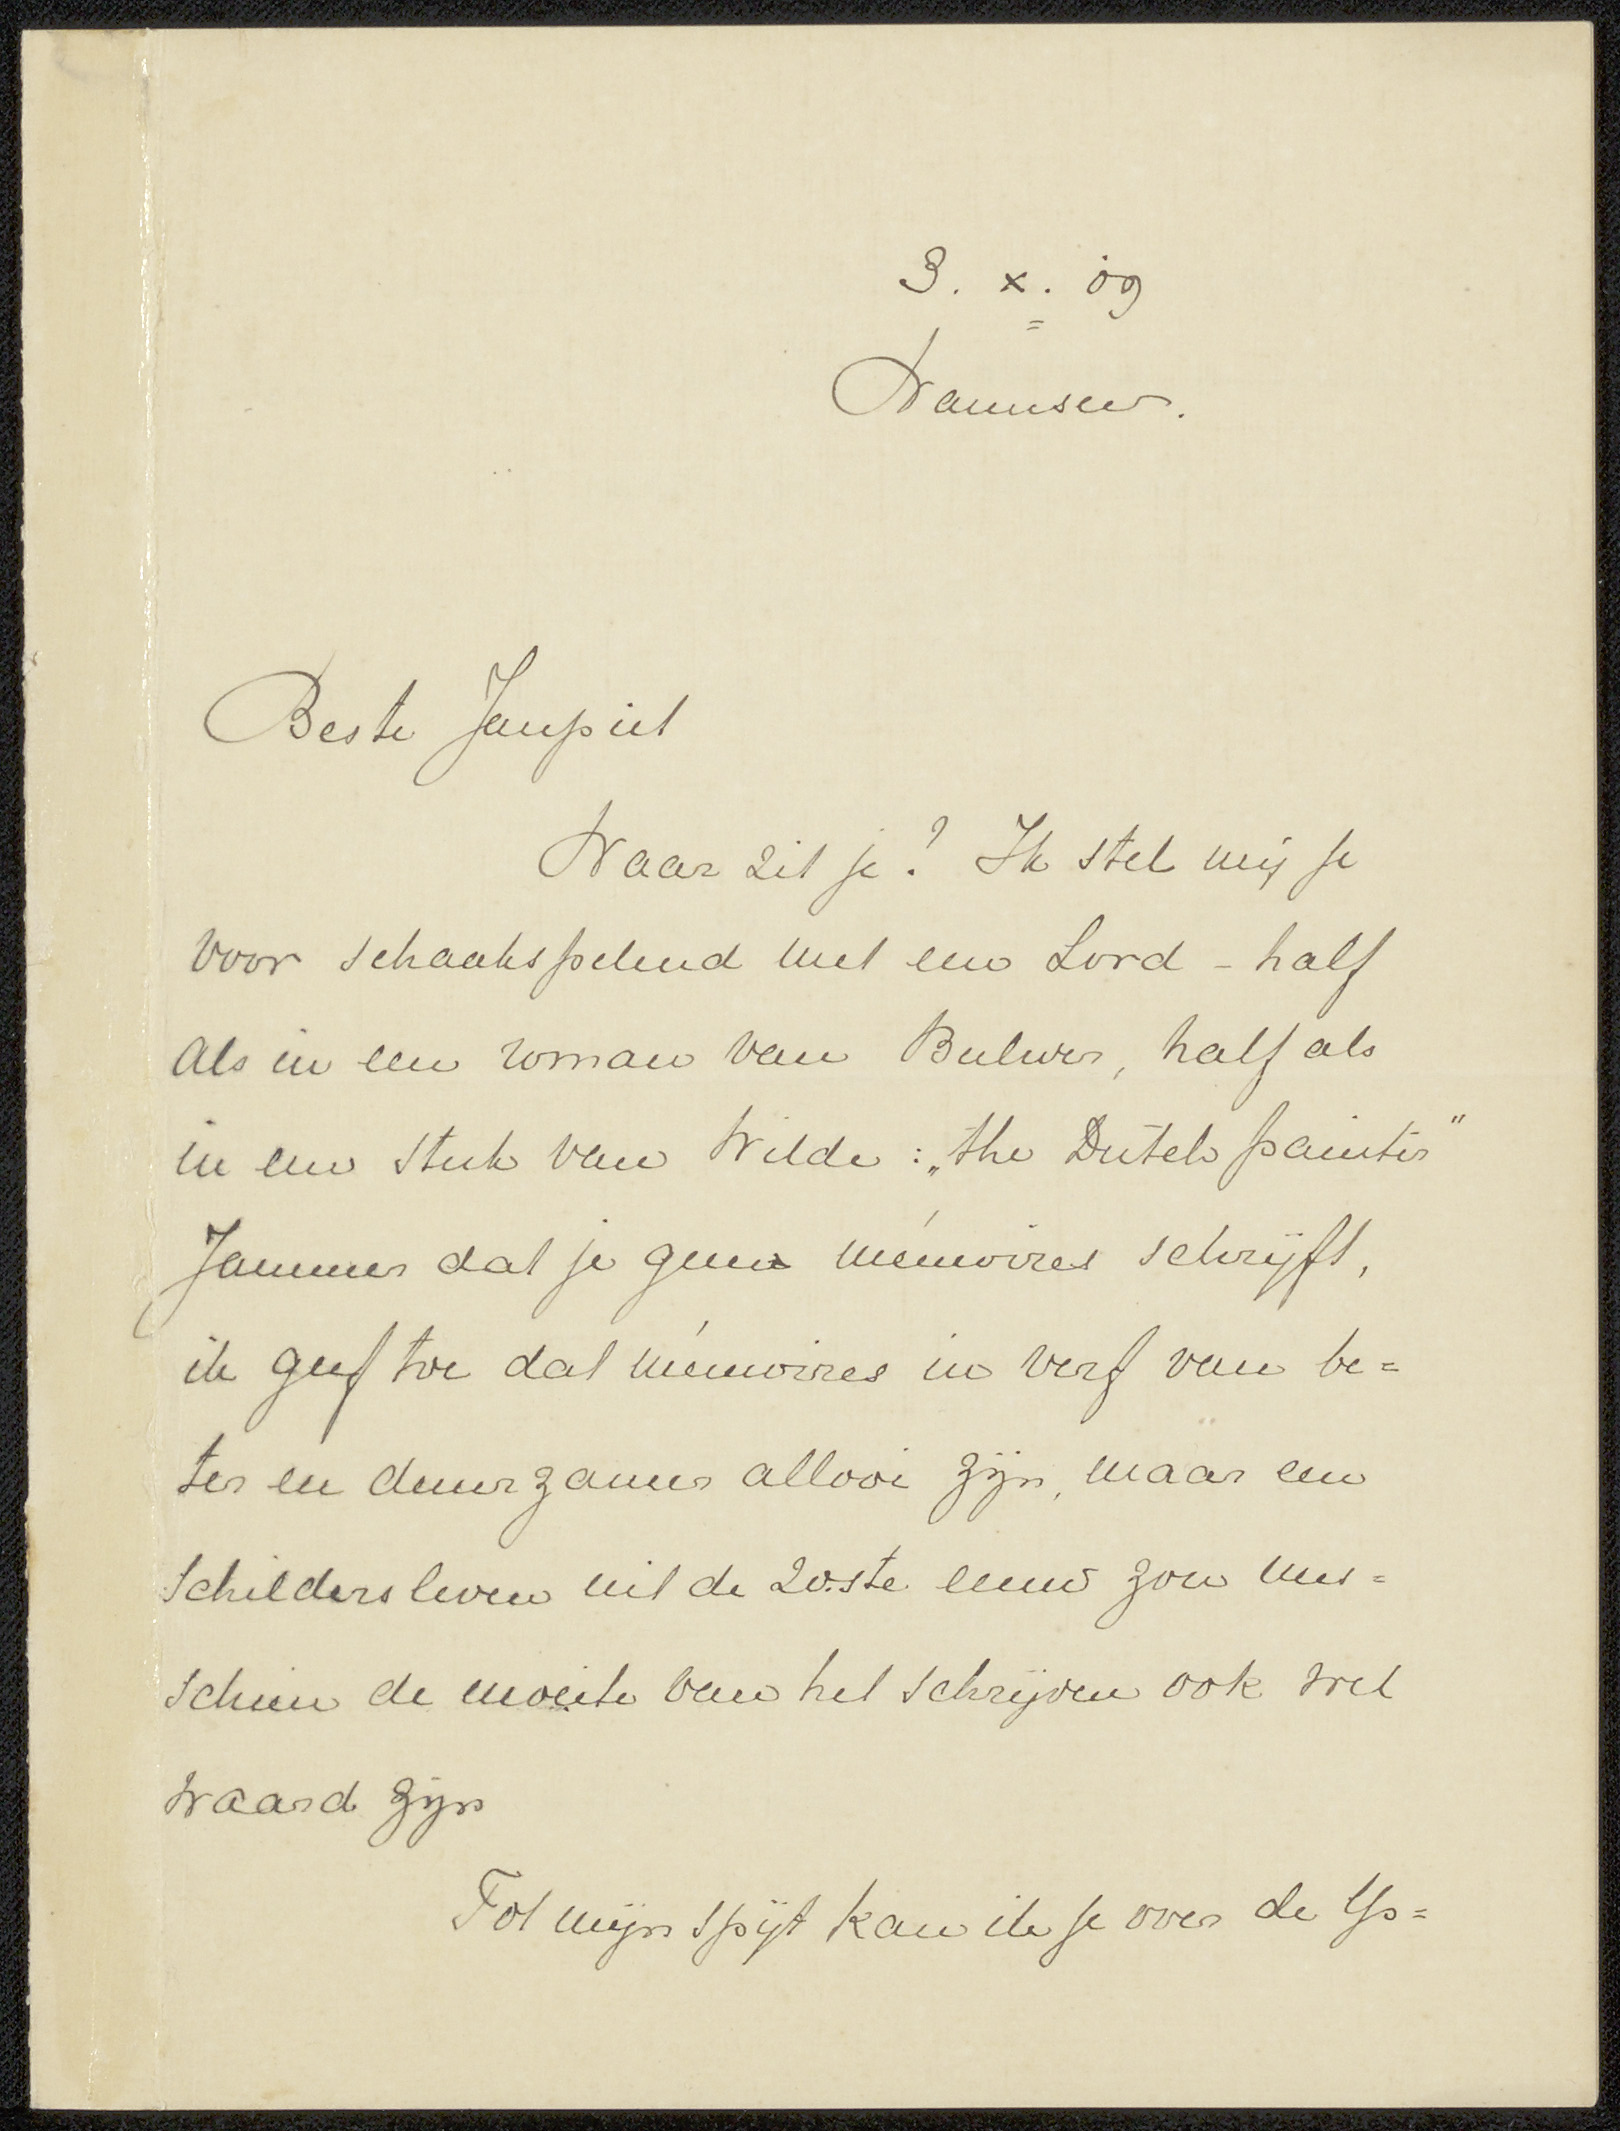 3. x. 09
Wannsee.
Beste Janpiet
Waar zit je? Ik stel mij je
voor schaakspelend met een Lord - half
als in een roman van Bulwer, half als
in een stuk van Wilde: „the Dutch painter"
Jammer dat je geen mémoires schrijft,
ik geef toe dat mémoires in verf van be=
ter en duurzamer allooi zijn, maar een
schildersleven uit de 20.ste eeuw zou mis=
schien de moeite van het schrijven ook wel
waard zijn
Tot mijn spijt kan ik je over de